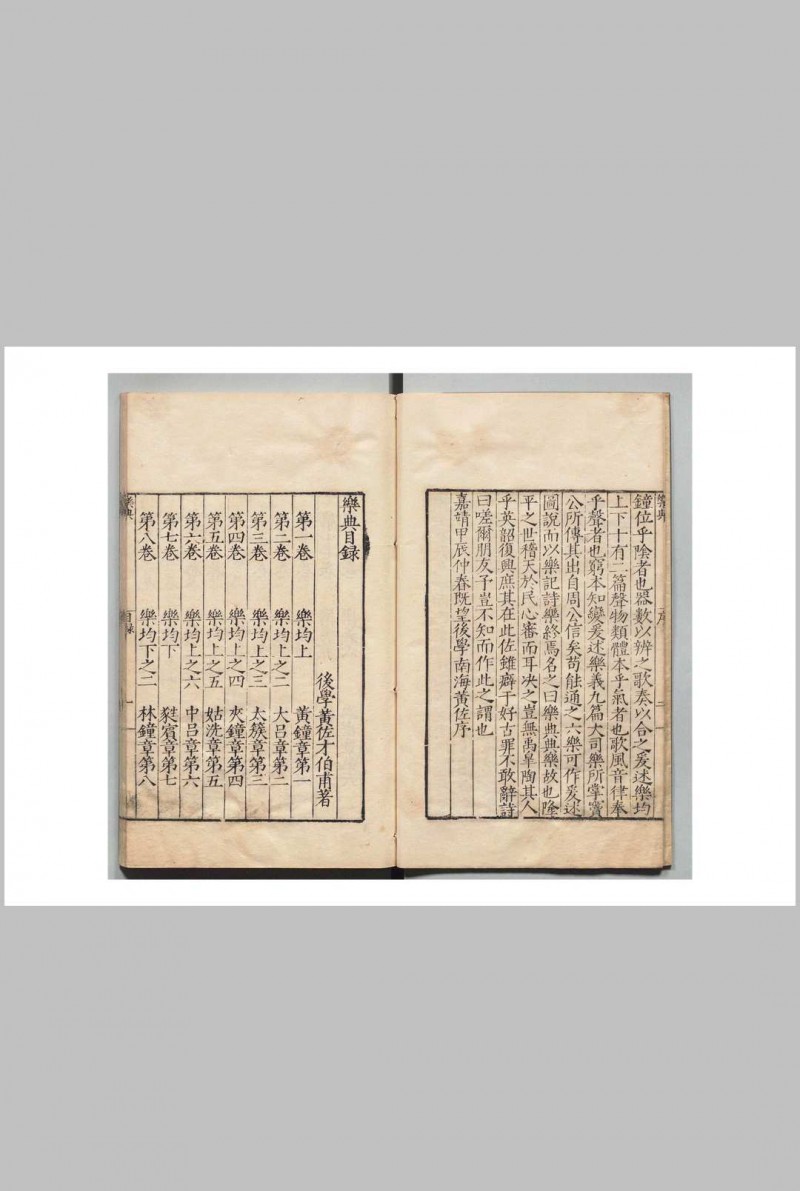 樂典
序
二
鐘位乎陰者也器數以辨之歌奏以合之爰述樂均
上下十有二篇聲物類體本乎氣者也歌風音律奉
乎聲者也窮本知變爰述樂義九篇大司樂所掌竇
公所傳其出自周公信矣苟能通之六樂可作爰述
圖說而以樂記詩樂終焉名之曰樂典典樂故也隆
平之世稽天於民心審而耳決之豈無禹皐陶其人
乎英韶復興庶其在此佐雖癖于好古罪不敢辭詩
曰嗟爾朋友予豈不知而作此之謂也
嘉靖甲辰仲春既望後學南海黃佐序
樂典目錄
後學黃佐才伯甫著
第一卷 樂均上 黃鐘章第一
第二卷 樂均上之二 大呂章第二
第三卷 樂均上之三 太簇章第三
第四卷 樂均上之四 夾鐘章第四
第五卷 樂均上之五 姑洗章第五
第六卷 樂均上之六 中呂章第六
第七卷 樂均下 蕤賓章第七
第八卷 樂均下之二 林鐘章第八
樂典
目錄
一